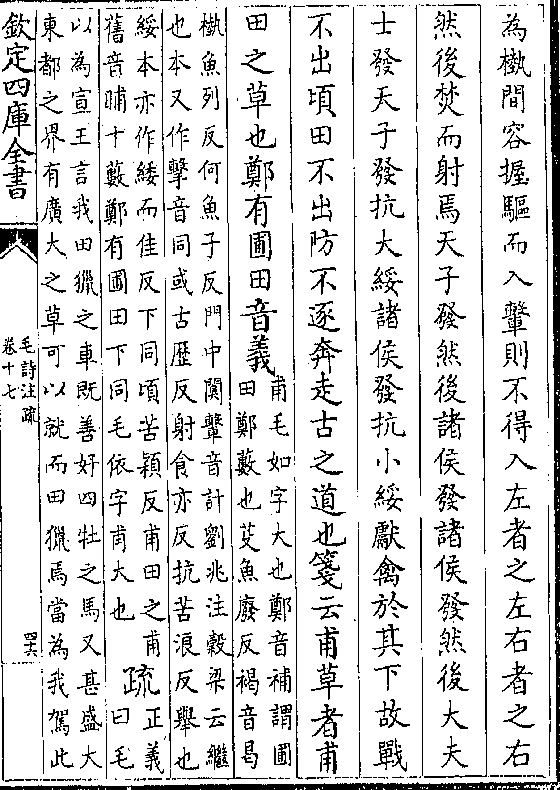 為槸間容握驅而入轚則不得入左者之左右者之右
然後焚而射焉天子發然後諸侯發諸侯發然後大夫
士發天子發抗大綏諸侯發抗小綏獻禽於其下故戰
不出頃田不出防不逐奔走古之道也箋云甫草者甫
田之草也鄭有圃田音義甫毛如字大也鄭音補謂圃
田鄭藪也艾魚廢反褐音曷
槸魚列反何魚子反門中闑轚音計劉兆注穀梁云繼
也本又作擊音同或古歷反射食亦反抗苦浪反舉也
綏本亦作緌而佳反下同頃苦穎反甫田之甫
舊音晡十藪鄭有圃田下同毛依字甫大也疏正義
曰毛
以為宣王言我田獵之車既善好四牡之馬又甚盛大
東都之界有廣大之草可以就而田獵焉當為我駕此
欽定四庫全書
毛詩注疏
卷十七